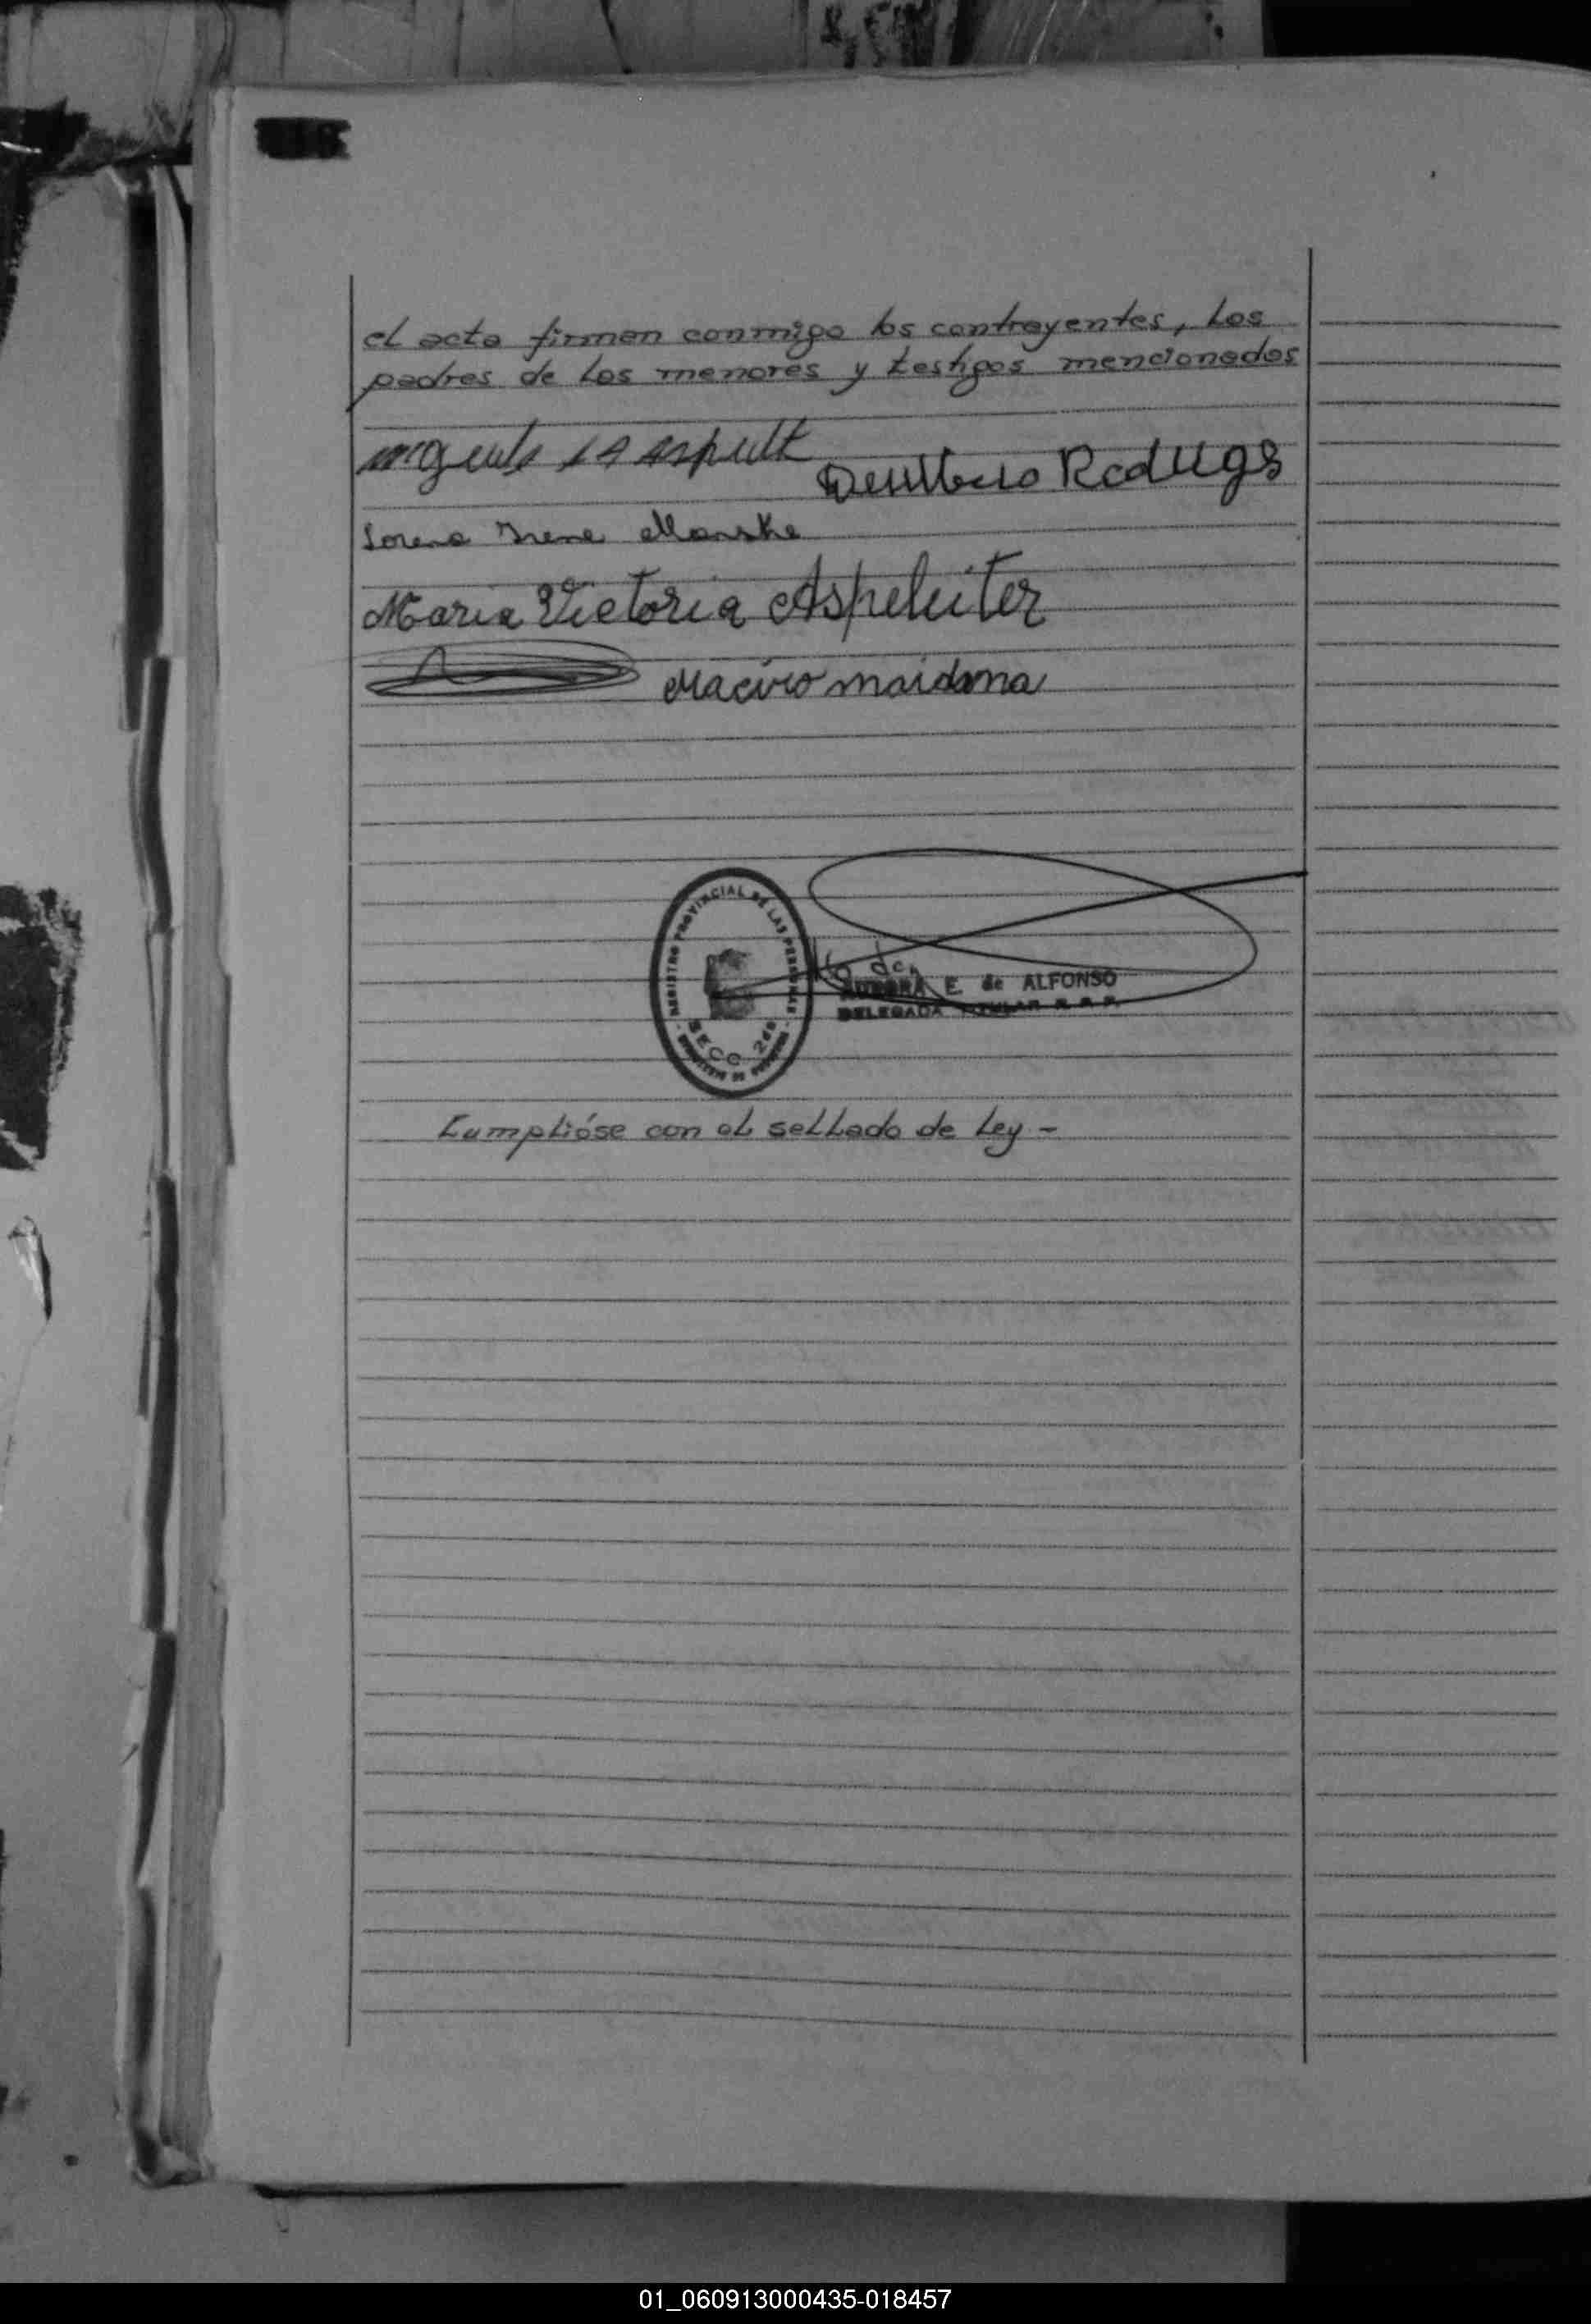 el acto firman conmigo los contrayentes, los
padres de los menores y testigos mencionados
Lorena Irene Manske
Maria Victoria Aspeleiter
Maciro maidana
REGISTRO PROVINCIAL DE LAS PERSONAS
SECC 2da
AURORA E. de ALFONSO
DELEGADA TITULAR R. P. P.
Cumplióse con el sellado de Ley -
01_060913000435-018457